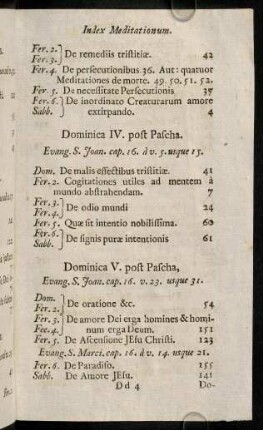 Index Meditationum.
Fer. 2. } De remediis tristitiæ. 42
Fer. 3.
Fer. 4. De persecutionibus 36. Aut: quatuor
Meditationes de morte. 49. 50. 51. 52.
Fer. 5. De necessitate Persecutionis 37
Fer. 6. } De inordinato Creaturarum amore
Sabb. extirpando. 4
Dominica IV. post Pascha.
Evang. S. Joan. cap. 16. à v. 5. usque 15.
Dom. De malis effectibus tristitiæ. 41
Fer. 2. Cogitationes utiles ad mentem à
mundo abstrahendam. 7
Fer. 3. } De odio mundi 24
Fer. 4.
Fer. 5. Quæ sit intentio nobilissima. 60
Fer. 6. } De signis puræ intentionis 61
Sabb.
Dominica V. post Pascha,
Evang. S. Joan. cap. 16. v. 23. usque 31.
Dom. } De oratione &c. 54
Fer. 2.
Fer. 3. } De amore Dei erga homines & homi-
Fer. 4. num erga Deum. 151
Fer. 5. De Ascensione JEsu Christi. 123
Evang. S. Marci. cap. 16. à v. 14. usque 21.
Fer. 6. De Paradiso. 155
Sabb. De Amore JEsu. 141
D d 4 Do-